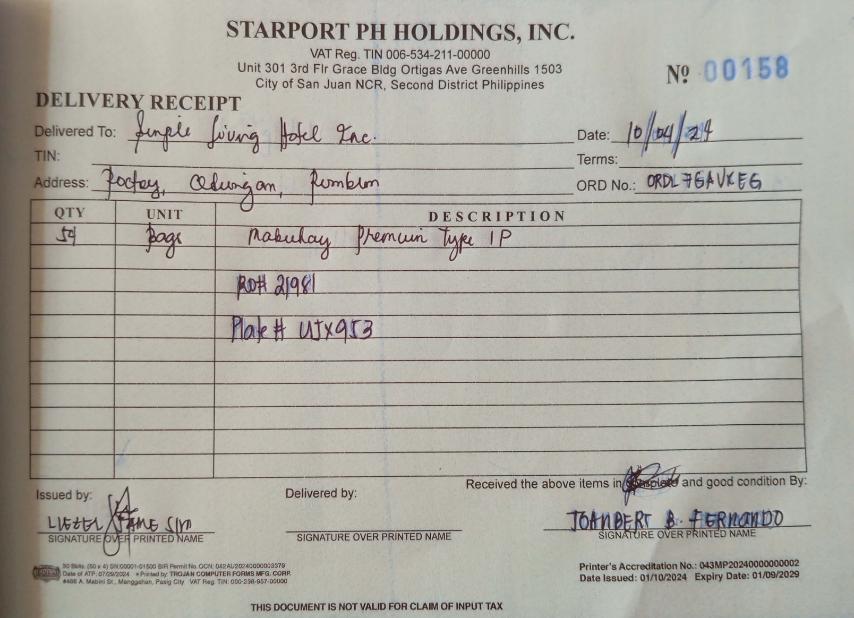 STARPORT PH HOLDINGS, INC.
VAT Reg. TIN 006-534-211-00000
Unit 301 3rd Flr Grace Bldg Ortigas Ave Greenhills 1503
City of San Juan NCR, Second District Philippines
Nº 00158
DELIVERY RECEIPT
Delivered To: Simple Living Hotel Inc.
Date: 10/04/24
TIN:
Terms:
Address: Poctoy, Odiongan, Romblon
ORD No.: ORDL7GAVKEG
QTY UNIT DESCRIPTION
54 bags Mabuhay Premium Type 1P
RO# 21981
Plate # UJX953
Received the above items in complete and good condition By:
Issued by:
Delivered by:
LIEZEL JANE SIM
JOANBERT B. FERNANDO
SIGNATURE OVER PRINTED NAME
SIGNATURE OVER PRINTED NAME
SIGNATURE OVER PRINTED NAME
50 Bklts. (50 x 4) SN:00001-01500 BIR Permit No. OCN:
Date of ATP: 07/29/2024 Printed by: TROJAN COMPUTER FORMS MFG. CORP.
#466 A. Mabini St., Manggahan, Pasig City VAT Reg. TIN: 000-238-957-00000
Printer's Accreditation No.: 043MP20240000000002
Date Issued: 01/10/2024 Expiry Date: 01/09/2029
THIS DOCUMENT IS NOT VALID FOR CLAIM OF INPUT TAX